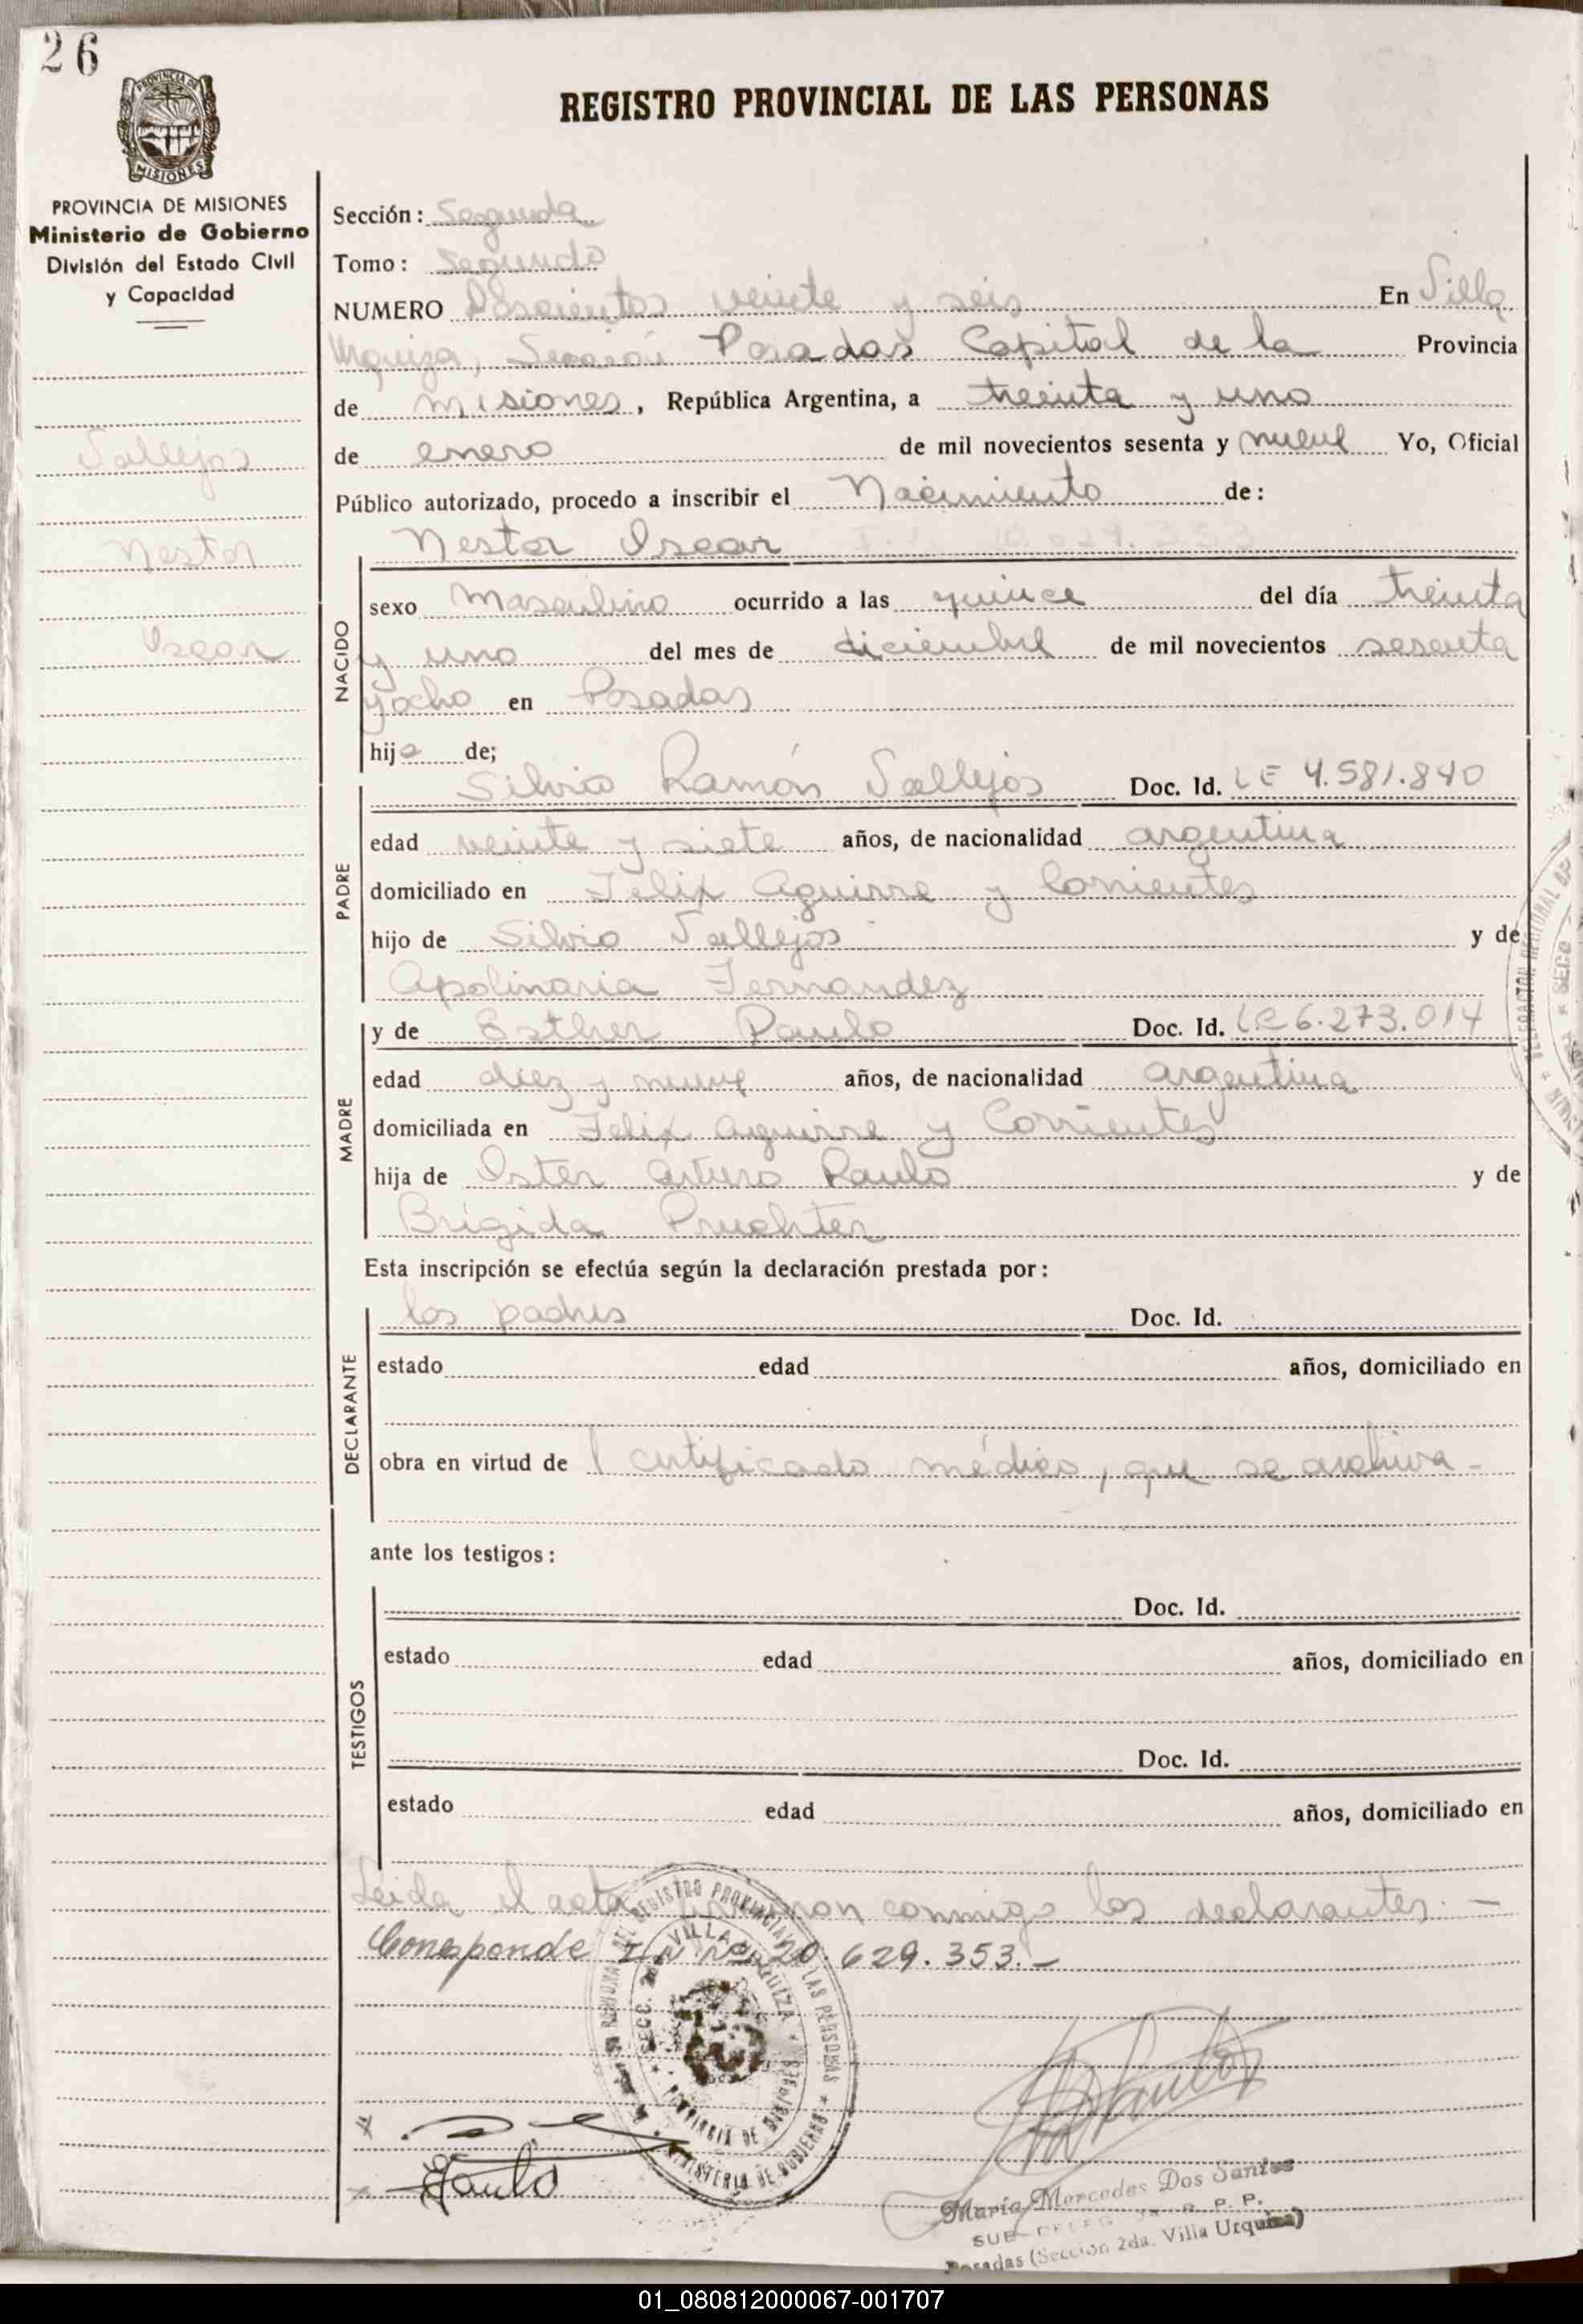 26
REGISTRO PROVINCIAL DE LAS PERSONAS
PROVINCIA DE MISIONES
MISIONES
PROVINCIA DE MISIONES
Ministerio de Gobierno
División del Estado Civil
y Capacidad
Vallejos
Nestor
Oscar
Sección: Segunda
Tomo: Segundo
NUMERO Doscientos veinte y seis En Villa
Urquiza, Sección Posadas Capital de la Provincia
de Misiones, República Argentina, a treinta y uno
de enero de mil novecientos sesenta y nueve Yo, Oficial
Público autorizado, procedo a inscribir el Nacimiento de:
Nestor Oscar
NACIDO
sexo Masculino ocurrido a las quince del día treinta
y uno del mes de diciembre de mil novecientos sesenta
y ocho en Posadas
hijo de;
PADRE
Silvio Ramón Vallejos Doc. Id. LE 4.581.840
edad veinte y siete años, de nacionalidad argentina
domiciliado en Felix Aguirre y Corrientes
hijo de Silvio Vallejos y de
Apolinaria Fernandez
MADRE
y de Esther Paulo Doc. Id. LC 6.273.014
edad diez y nueve años, de nacionalidad argentina
domiciliada en Felix Aguirre y Corrientes
hija de Arturo Paulo y de
Brigida Pruchter
Esta inscripción se efectúa según la declaración prestada por:
DECLARANTE
los padres Doc. Id.
estado edad años, domiciliado en
obra en virtud de l certificado médico, que se archiva -
ante los testigos:
TESTIGOS
Doc. Id.
estado edad años, domiciliado en
Doc. Id.
estado edad años, domiciliado en
Leida el acta firmaron conmigo los declarantes. -
Corresponde I N Nº 20.629.353.-
REGISTRO PROVINCIAL DE LAS PERSONAS
SECC. 2da VILLA URQUIZA
PROVINCIA DE MISIONES
MINISTERIO DE GOBIERNO
Paulo
María Mercedes Dos Santos
SUB-DELEG R. P. P.
Posadas (Sección 2da. Villa Urquiza)
01_080812000067-001707